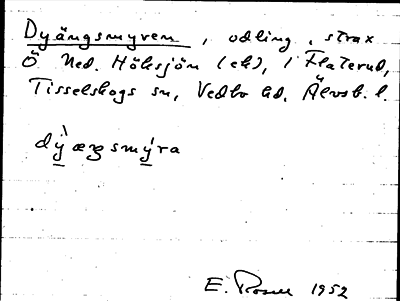 Dyängsmyren, odling, strax
Ö Ned. Höksjön (ek), i Flaterud,
Tisselskogs sn, Vedbo hd. Älvsb. l.
dỳængsmýra
E. Rosell 1952